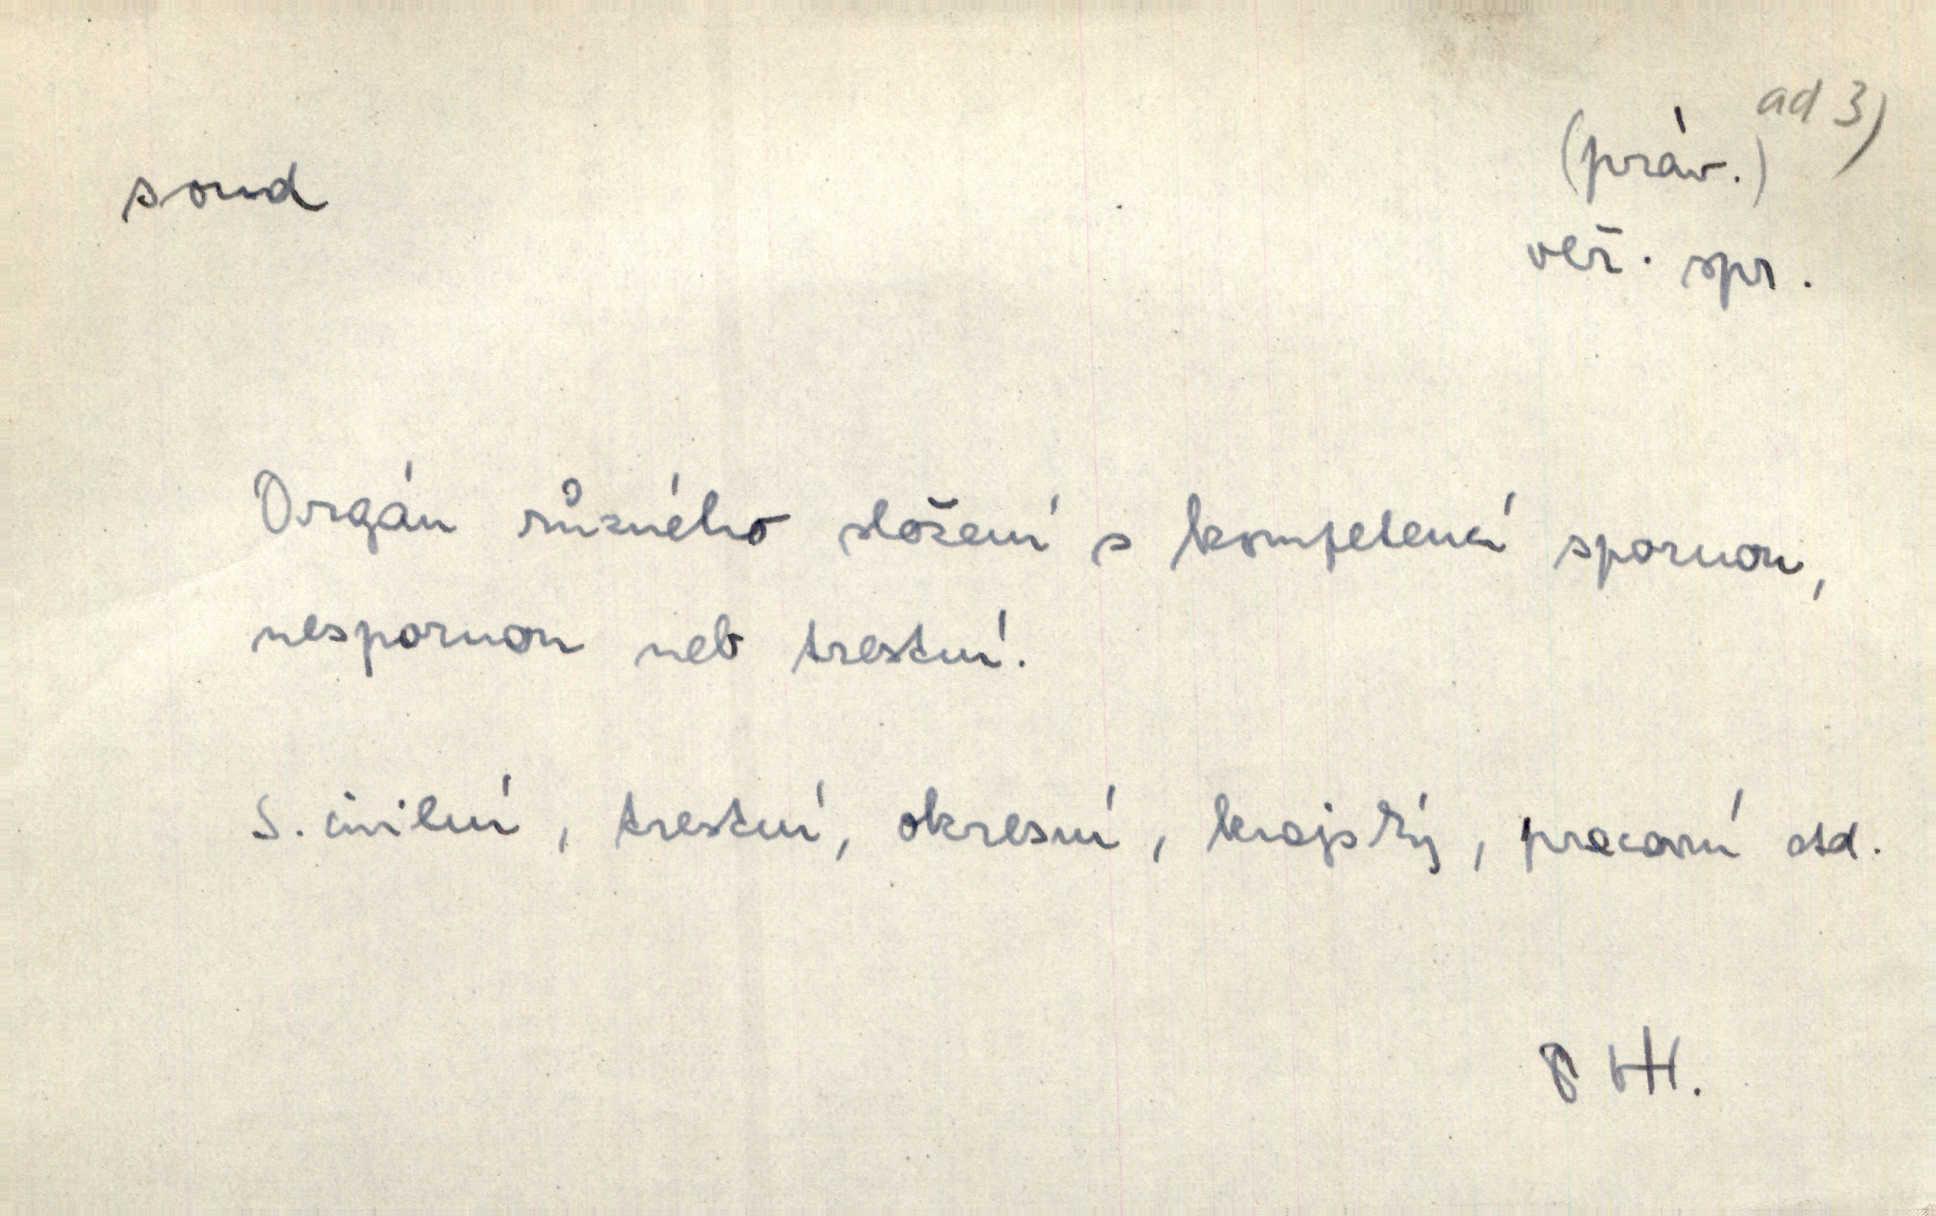 ad 3)
soud
(práv.)
veř. spr.
Orgán různého složení s kompetencí spornou,
nespornou neb trestní.
S. civilní, trestní, okresní, krajský, pracovní atd.